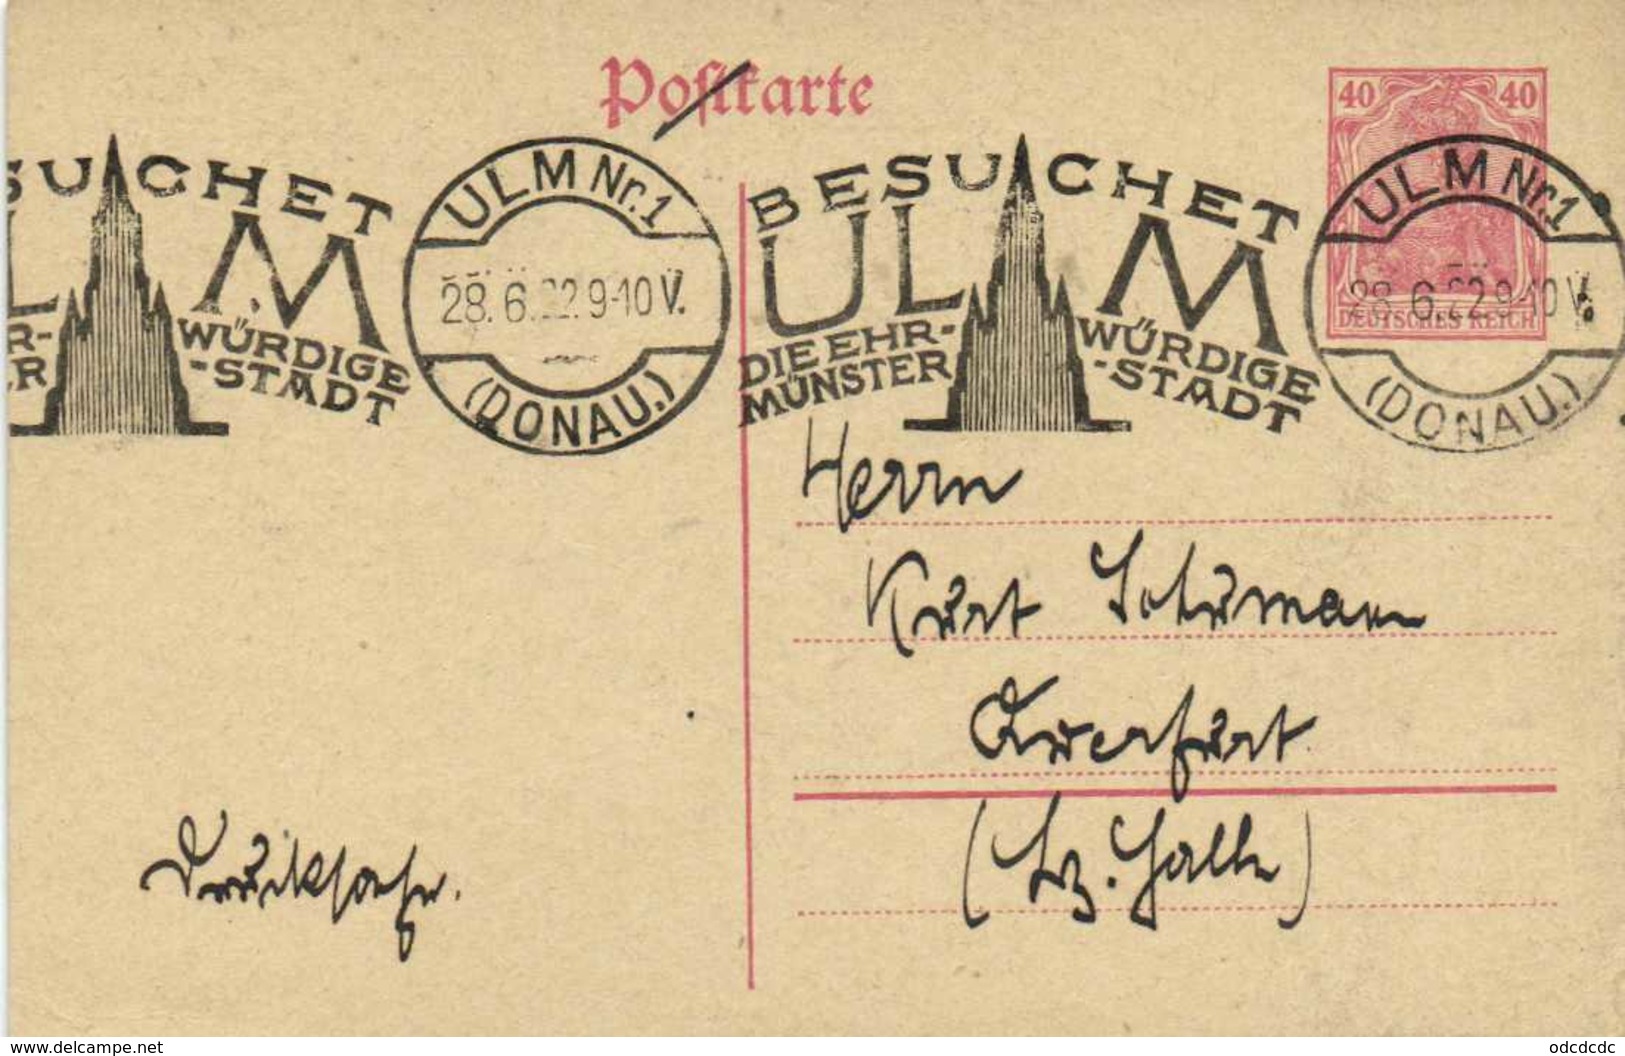 Postkarte
40 40
DEUTSCHES REICH
SUCHET
L M
R- WÜRDIGE
ER -STADT
ULM Nr. 1
28. 6. 22. 9-10 V.
(DONAU.)
BESUCHET
ULM
DIE EHR- WÜRDIGE
MÜNSTER -STADT
ULM Nr. 1
28. 6. 22. 9-10 V.
(DONAU.)
Herrn
Kurt Schumann
Querfurt
(Bz. Halle)
Drucksache.
delcampe.net
odcdcdc